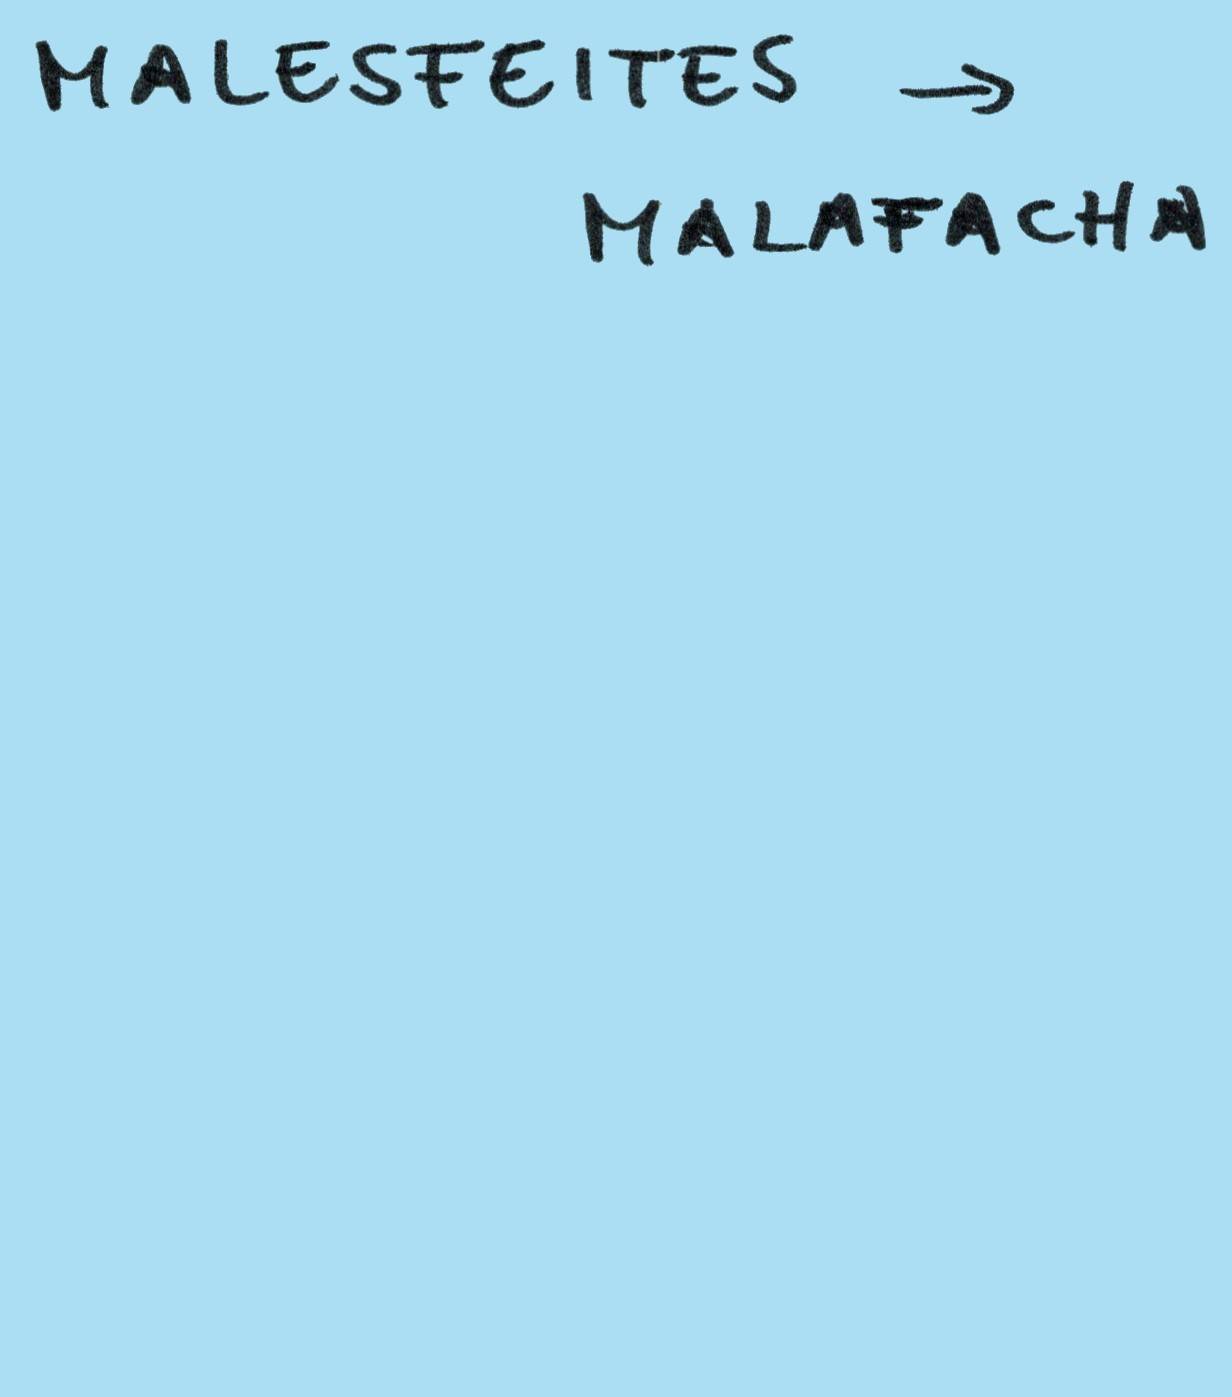 MALESFEITES →
MALAFACHA